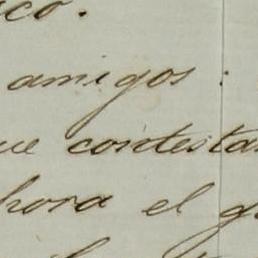 sco.
amigos:
ue contesta
hora el g